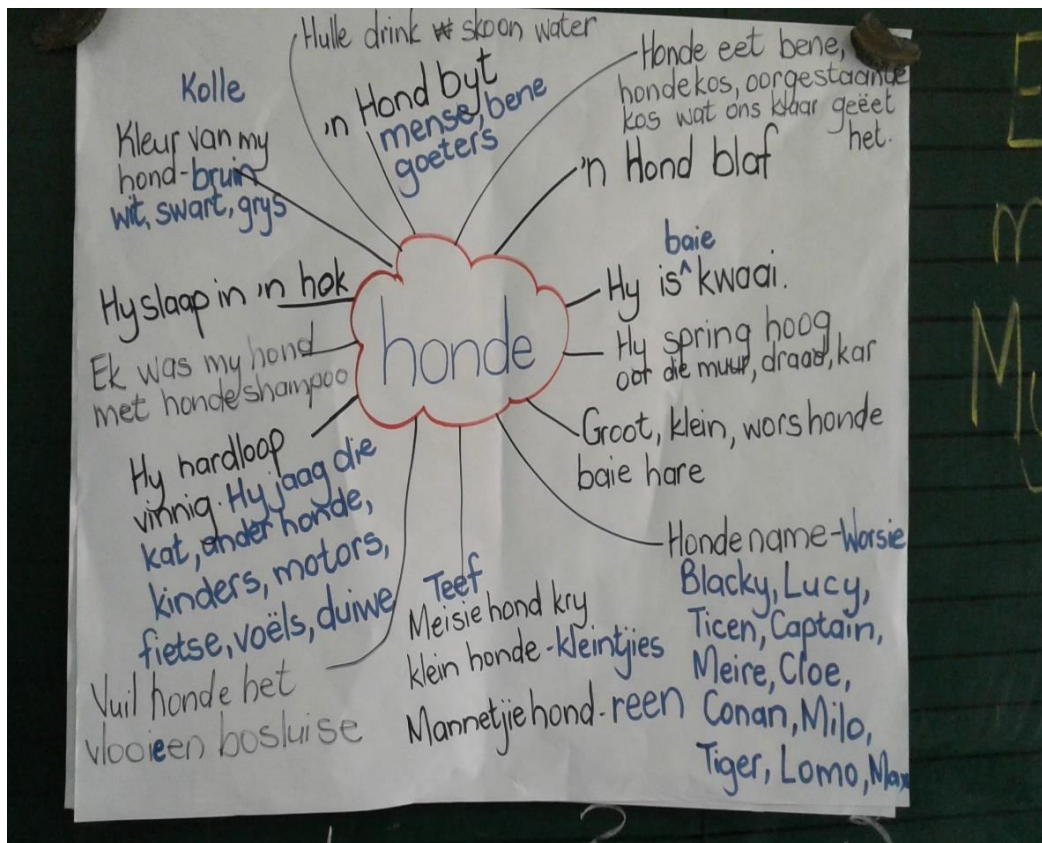 honde
Hulle drink skoon water
'n Hond byt
mense, bene
goeters
Honde eet bene,
hondekos, oorgestaande
kos wat ons klaar geëet
het.
'n Hond blaf
baie
Hy is ^ kwaai.
Hy spring hoog
oor die muur, draad, kar
Groot, klein, wors honde
baie hare
Honde name - Worsie
Blacky, Lucy,
Ticen, Captain,
Meire, Cloe,
Conan, Milo,
Tiger, Lomo, Max
Teef
Meisie hond kry
klein honde - kleintjies
Mannetjie hond - reen
Vuil honde het
vlooie en bosluise
Hy hardloop
vinnig. Hy jaag die
kat, ander honde,
kinders, motors,
fietse, voëls, duiwe
Ek was my hond
met hondeshampoo
Hy slaap in 'n hok
Kolle
Kleur van my
hond - bruin
wit, swart, grys